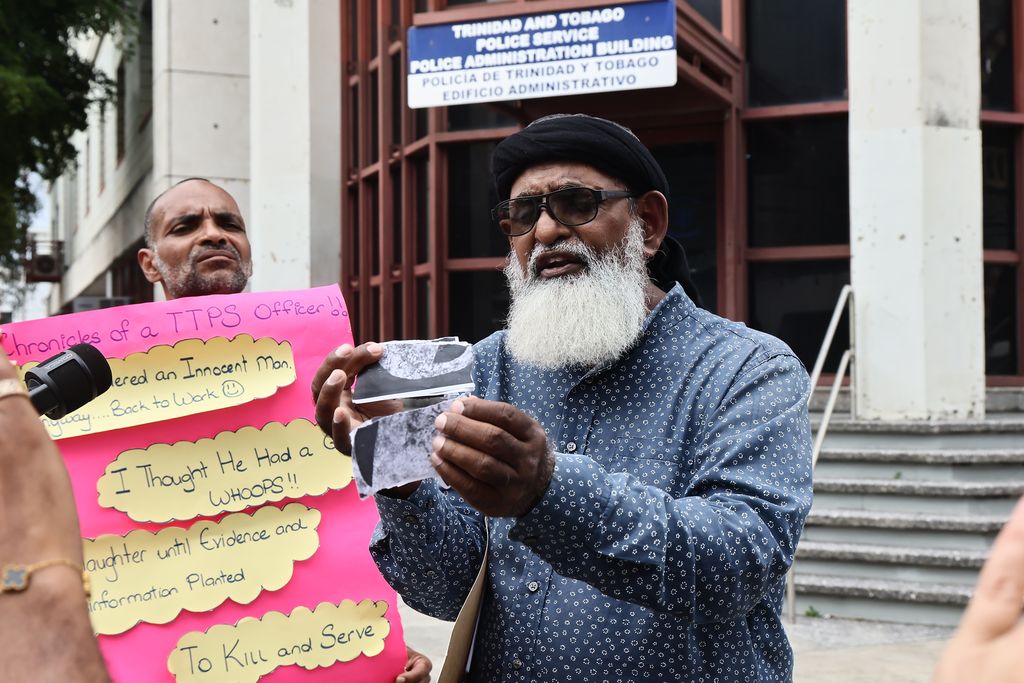 TRINIDAD AND TOBAGO
POLICE SERVICE
POLICE ADMINISTRATION BUILDING
POLICÍA DE TRINIDAD Y TOBAGO
EDIFICIO ADMINISTRATIVO
Chronicles of a TTPS Officer!!
dered an Innocent Man.
nyway....Back to Work ☺
I Thought He Had a
WHOOPS!!
aughter until Evidence and
information Planted
To Kill and Serve